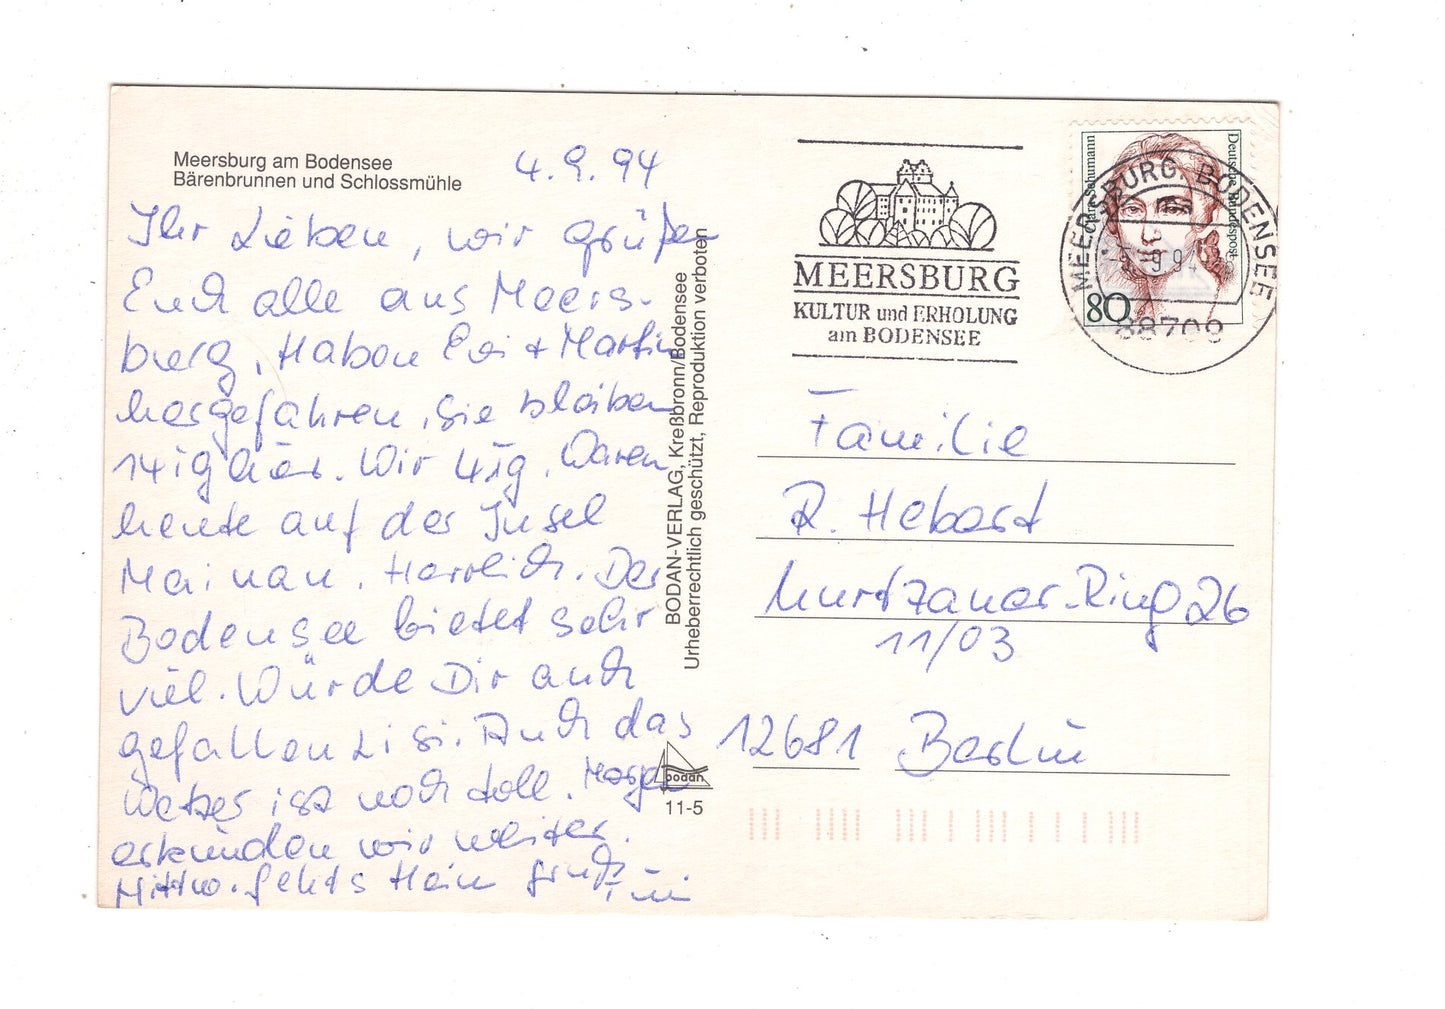 Meersburg am Bodensee
Bärenbrunnen und Schlossmühle
4.9.94
Ihr Lieben, wir grüßen
Euch alle aus Meers-
burg. Haben Evi + Martin
hergefahren. Sie bleiben
14 Tg hier. Wir 4 Tg. Waren
heute auf der Insel
Mainau. Herrlich. Der
Bodensee bietet sehr
viel. Würde Dir auch
gefallen Lisi. Auch das
Wetter ist noch toll. Morgen
erkunden wir weiter.
Mittwo. gehts Heim
BODAN-VERLAG, Kreßbronn/Bodensee
Urheberrechtlich geschützt, Reproduktion verboten
bodan
11-5
MEERSBURG
KULTUR und ERHOLUNG
am BODENSEE
Clara Schumann
Deutsche Bundespost
80
MEERSBURG, BODENSEE
-5.-9.94
88709
Familie
R. Hebast
Murtzaner-Ring 26
11/03
12681 Berlin